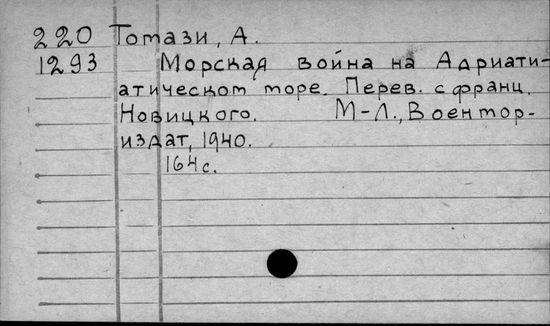 220 Томази, А.
1293 Морская война на Адриати-
атическом море. Перев. с франц.
Новицкого. М-Л., Военмор-
издат, 1940.
164 с.